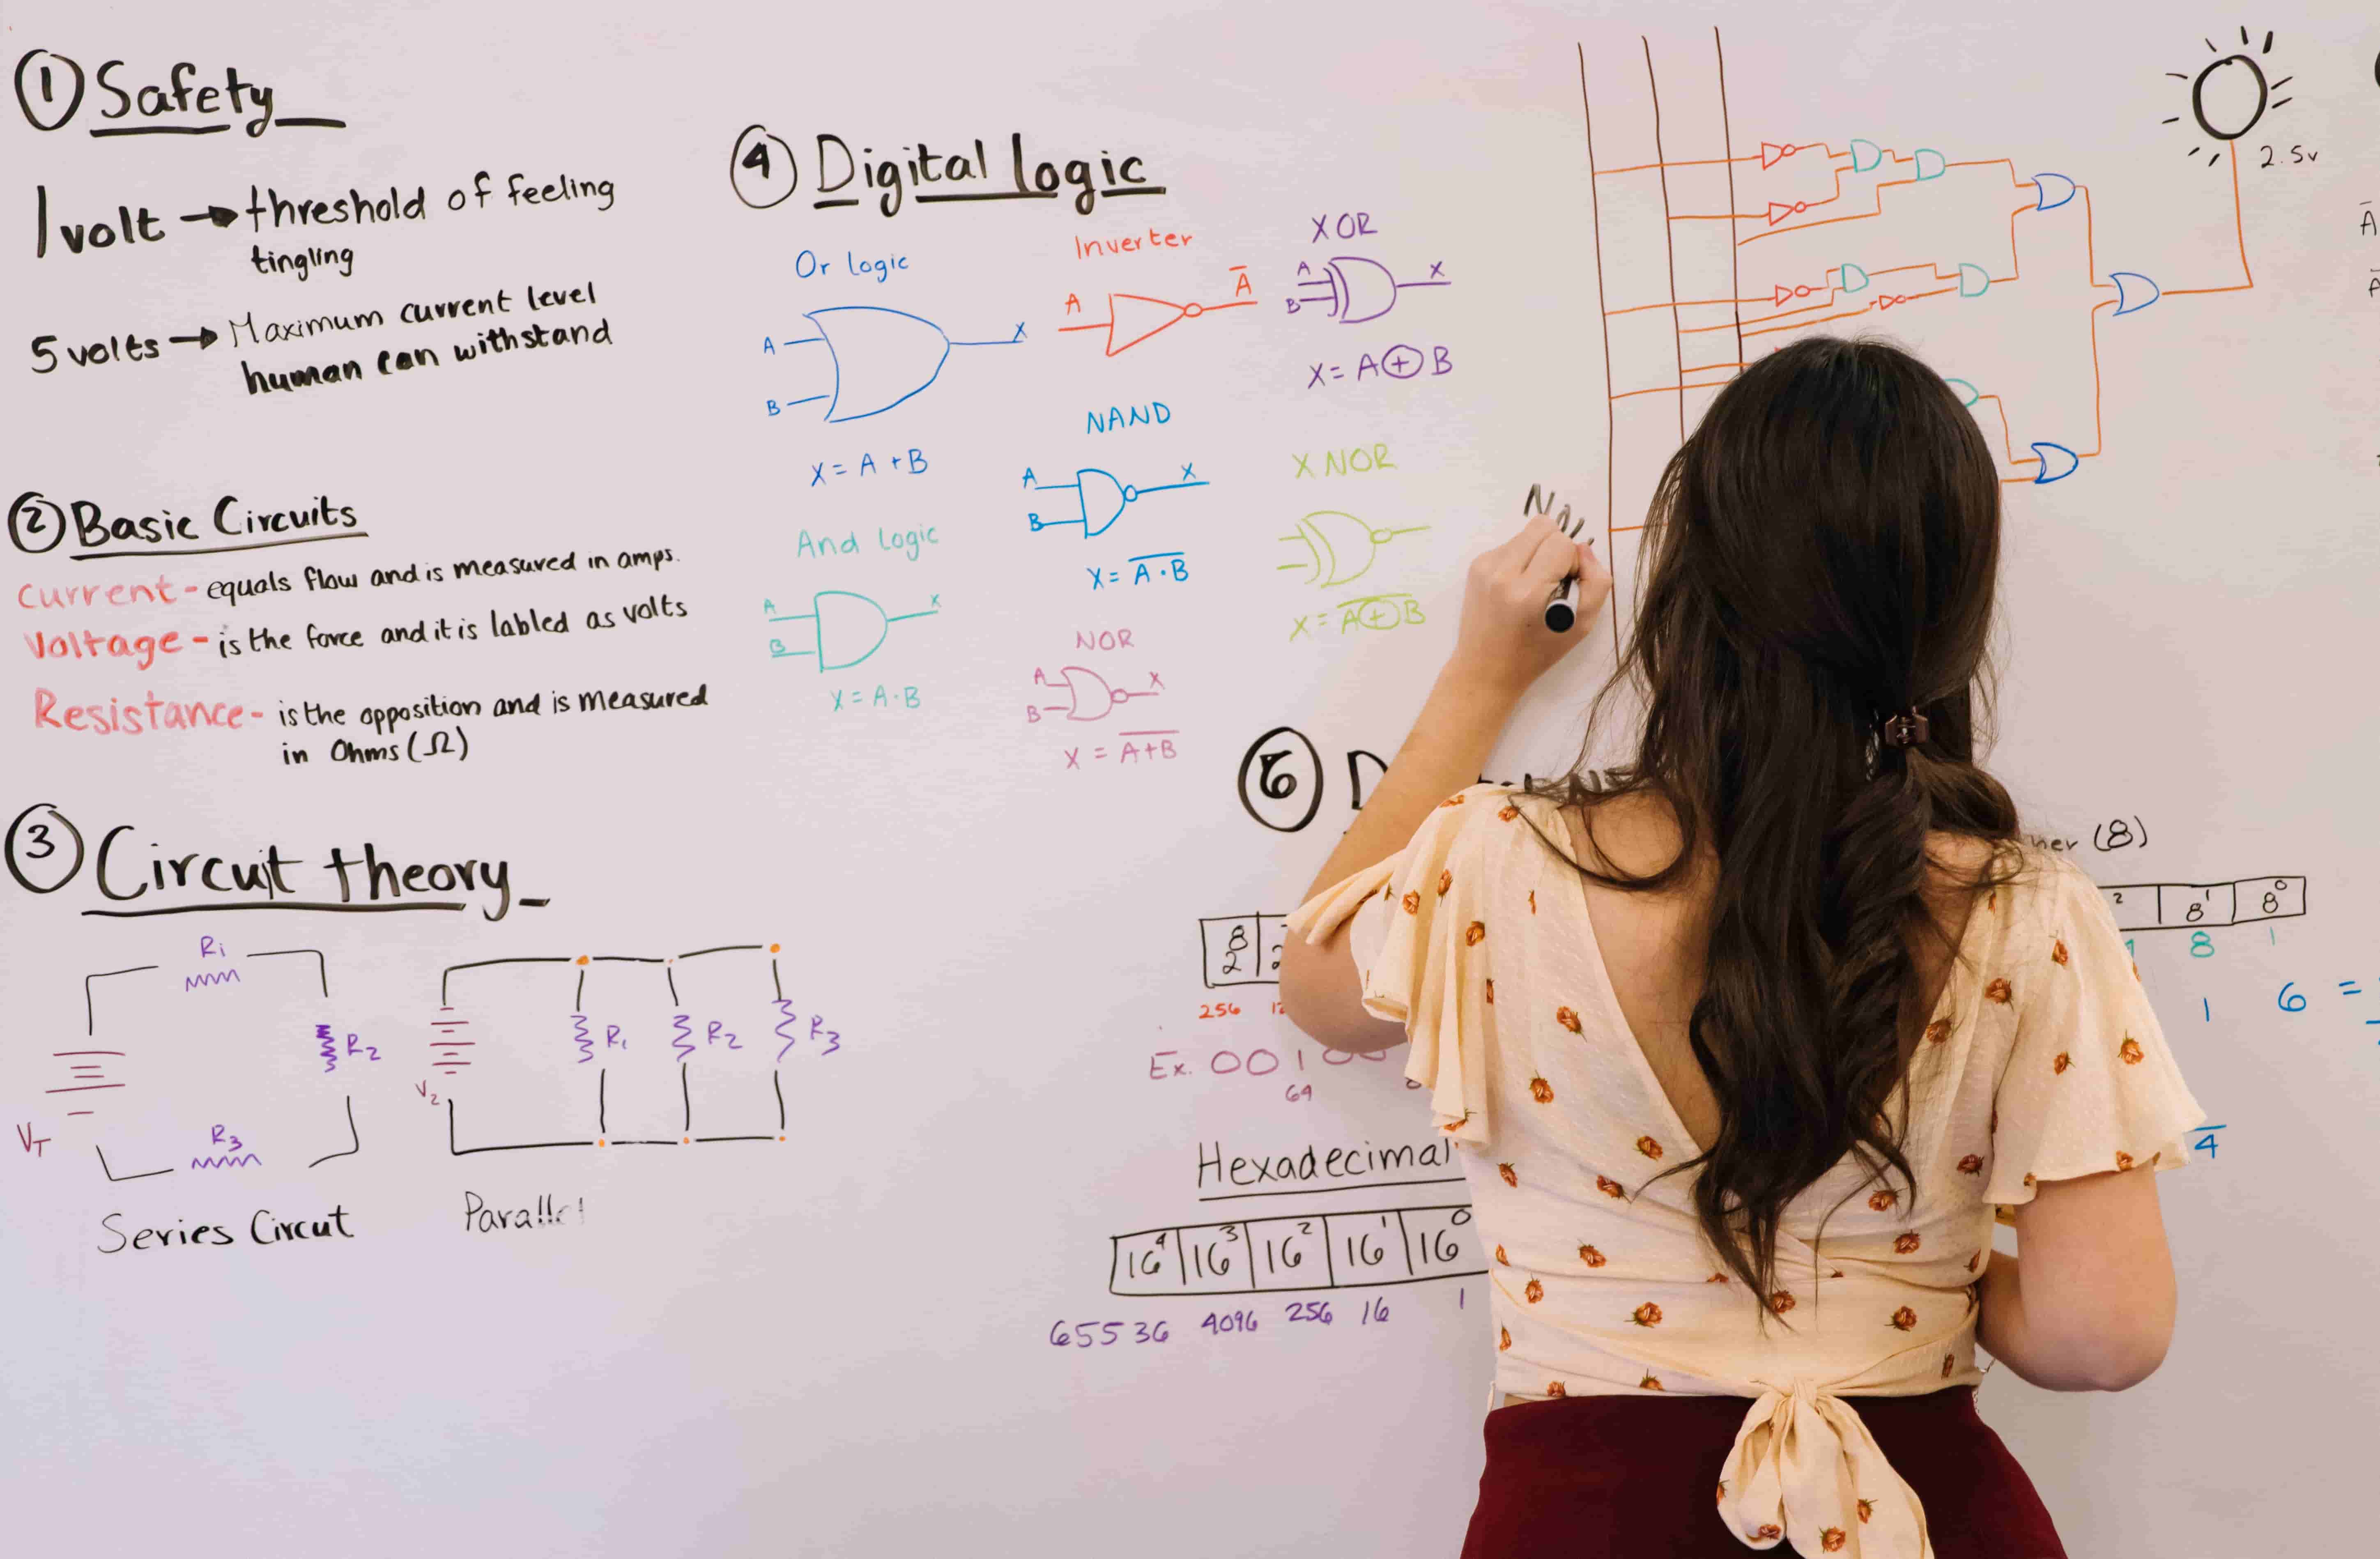 ① Safety
1 volt → threshold of feeling
tingling
5 volts → Maximum current level
human can withstand
② Basic Circuits
Current - equals flow and is measured in amps.
Voltage - is the force and it is labled as volts
Resistance - is the opposition and is measured
in Ohms (Ω)
③ Circuit theory
R1
R2
R3
VT
Series Circut
V2
R1
R2
R3
Parallel
④ Digital logic
Or logic
A
B
X
X = A + B
And Logic
A
B
X
X = A · B
Inverter
A
A̅
NAND
A
B
X
X = A̅ ̅·̅ ̅B̅
NOR
A
B
X
X = A̅+̅B̅
XOR
A
B
X
X = A ⊕ B
X NOR
X = A̅ ̅⊕̅ ̅B̅
2.5v
(8)
8
2
256
Ex. 001
64
8¹ 8⁰
8 1
1 6 =
4
Hexadecimal
16⁴ 16³ 16² 16¹ 16⁰
65536 4096 256 16 1